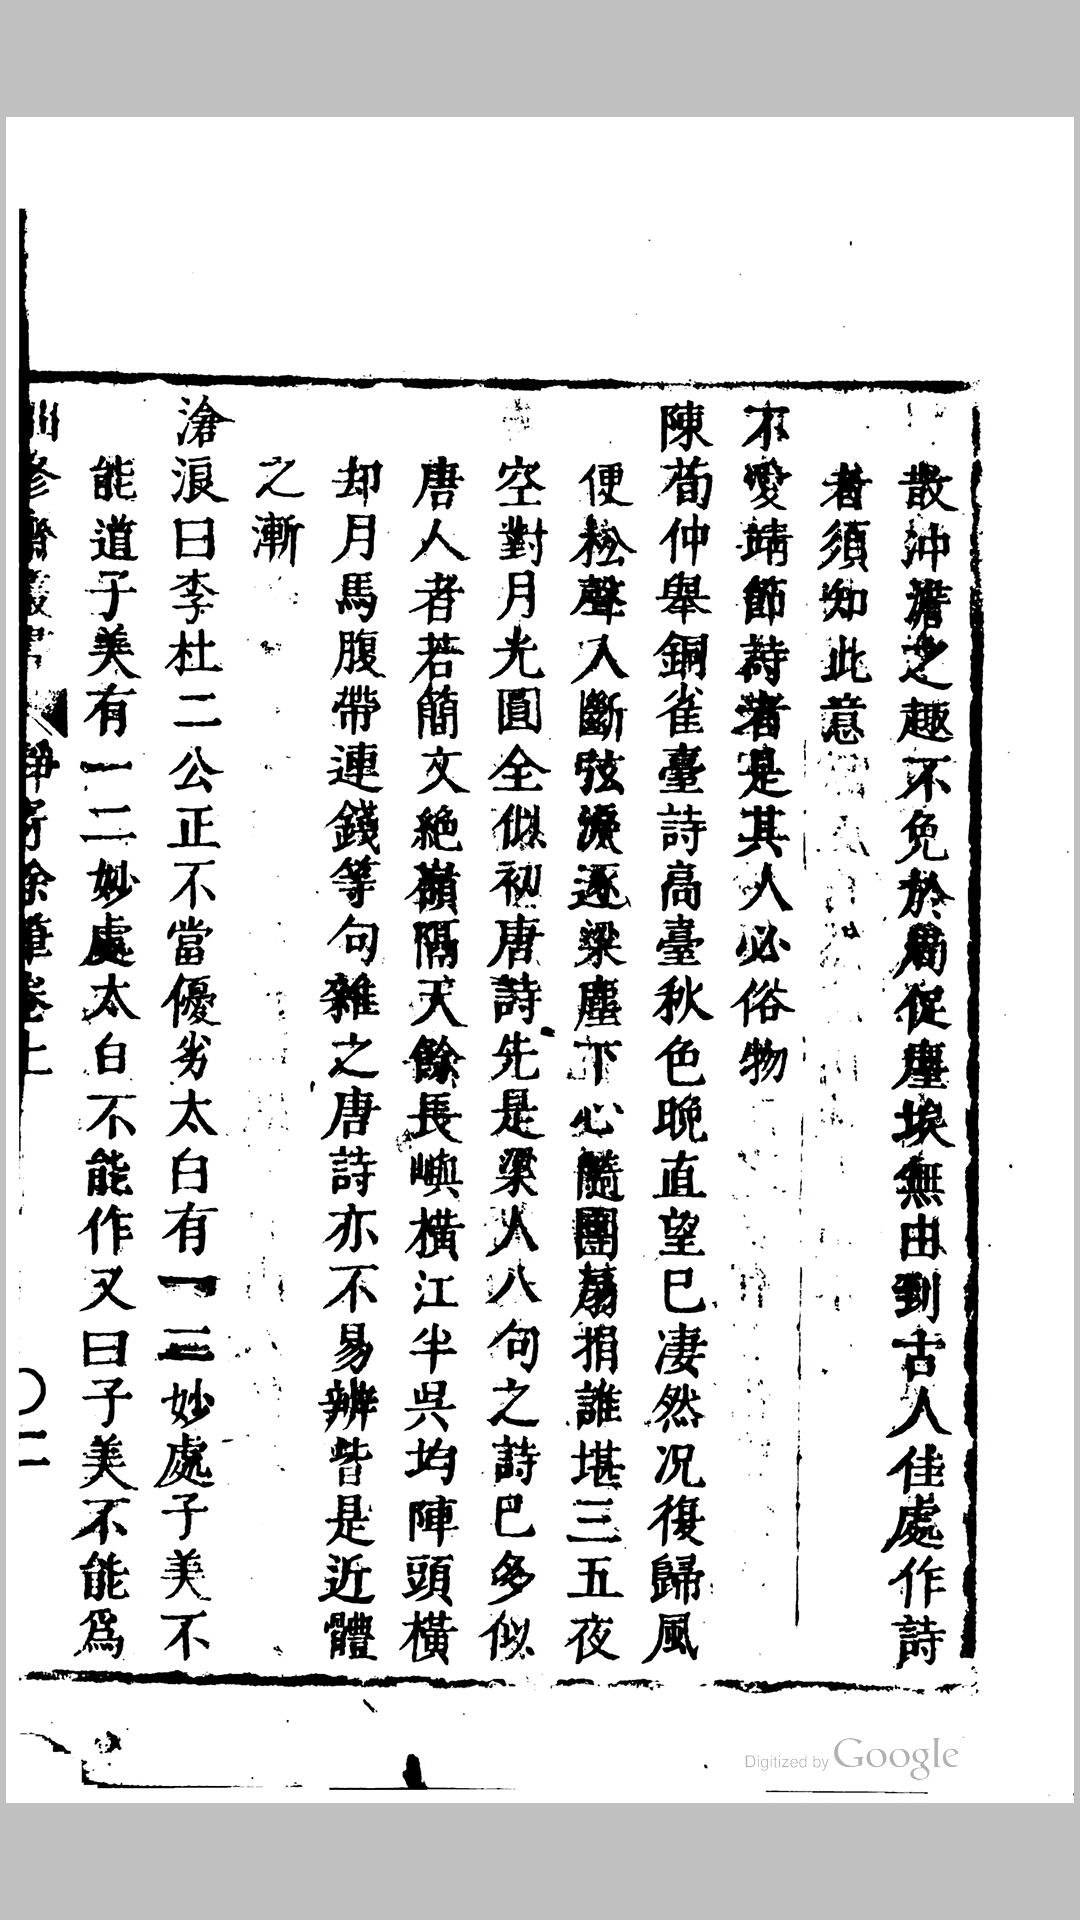 散沖澹之趣不免於局促塵埃無由到古人佳處作詩
者須知此意
不愛靖節詩者是其人必俗物
陳荀仲舉銅雀臺詩高臺秋色晚直望已凄然况復歸風
便松聲入斷弦淚逐梁塵下心隨團扇捐誰堪三五夜
空對月光圓全似初唐詩先是梁人八句之詩巳多似
唐人者若簡文絶嶺隔天餘長嶼橫江半呉均陣頭橫
却月馬腹帶連錢等句雜之唐詩亦不易辨皆是近體
之漸
滄浪曰李杜二公正不當優劣太白有一二妙處子美不
能道子美有一二妙處太白不能作又曰子美不能爲
修齋叢書 靜寄餘筆卷上 〇二
Digitized by Google